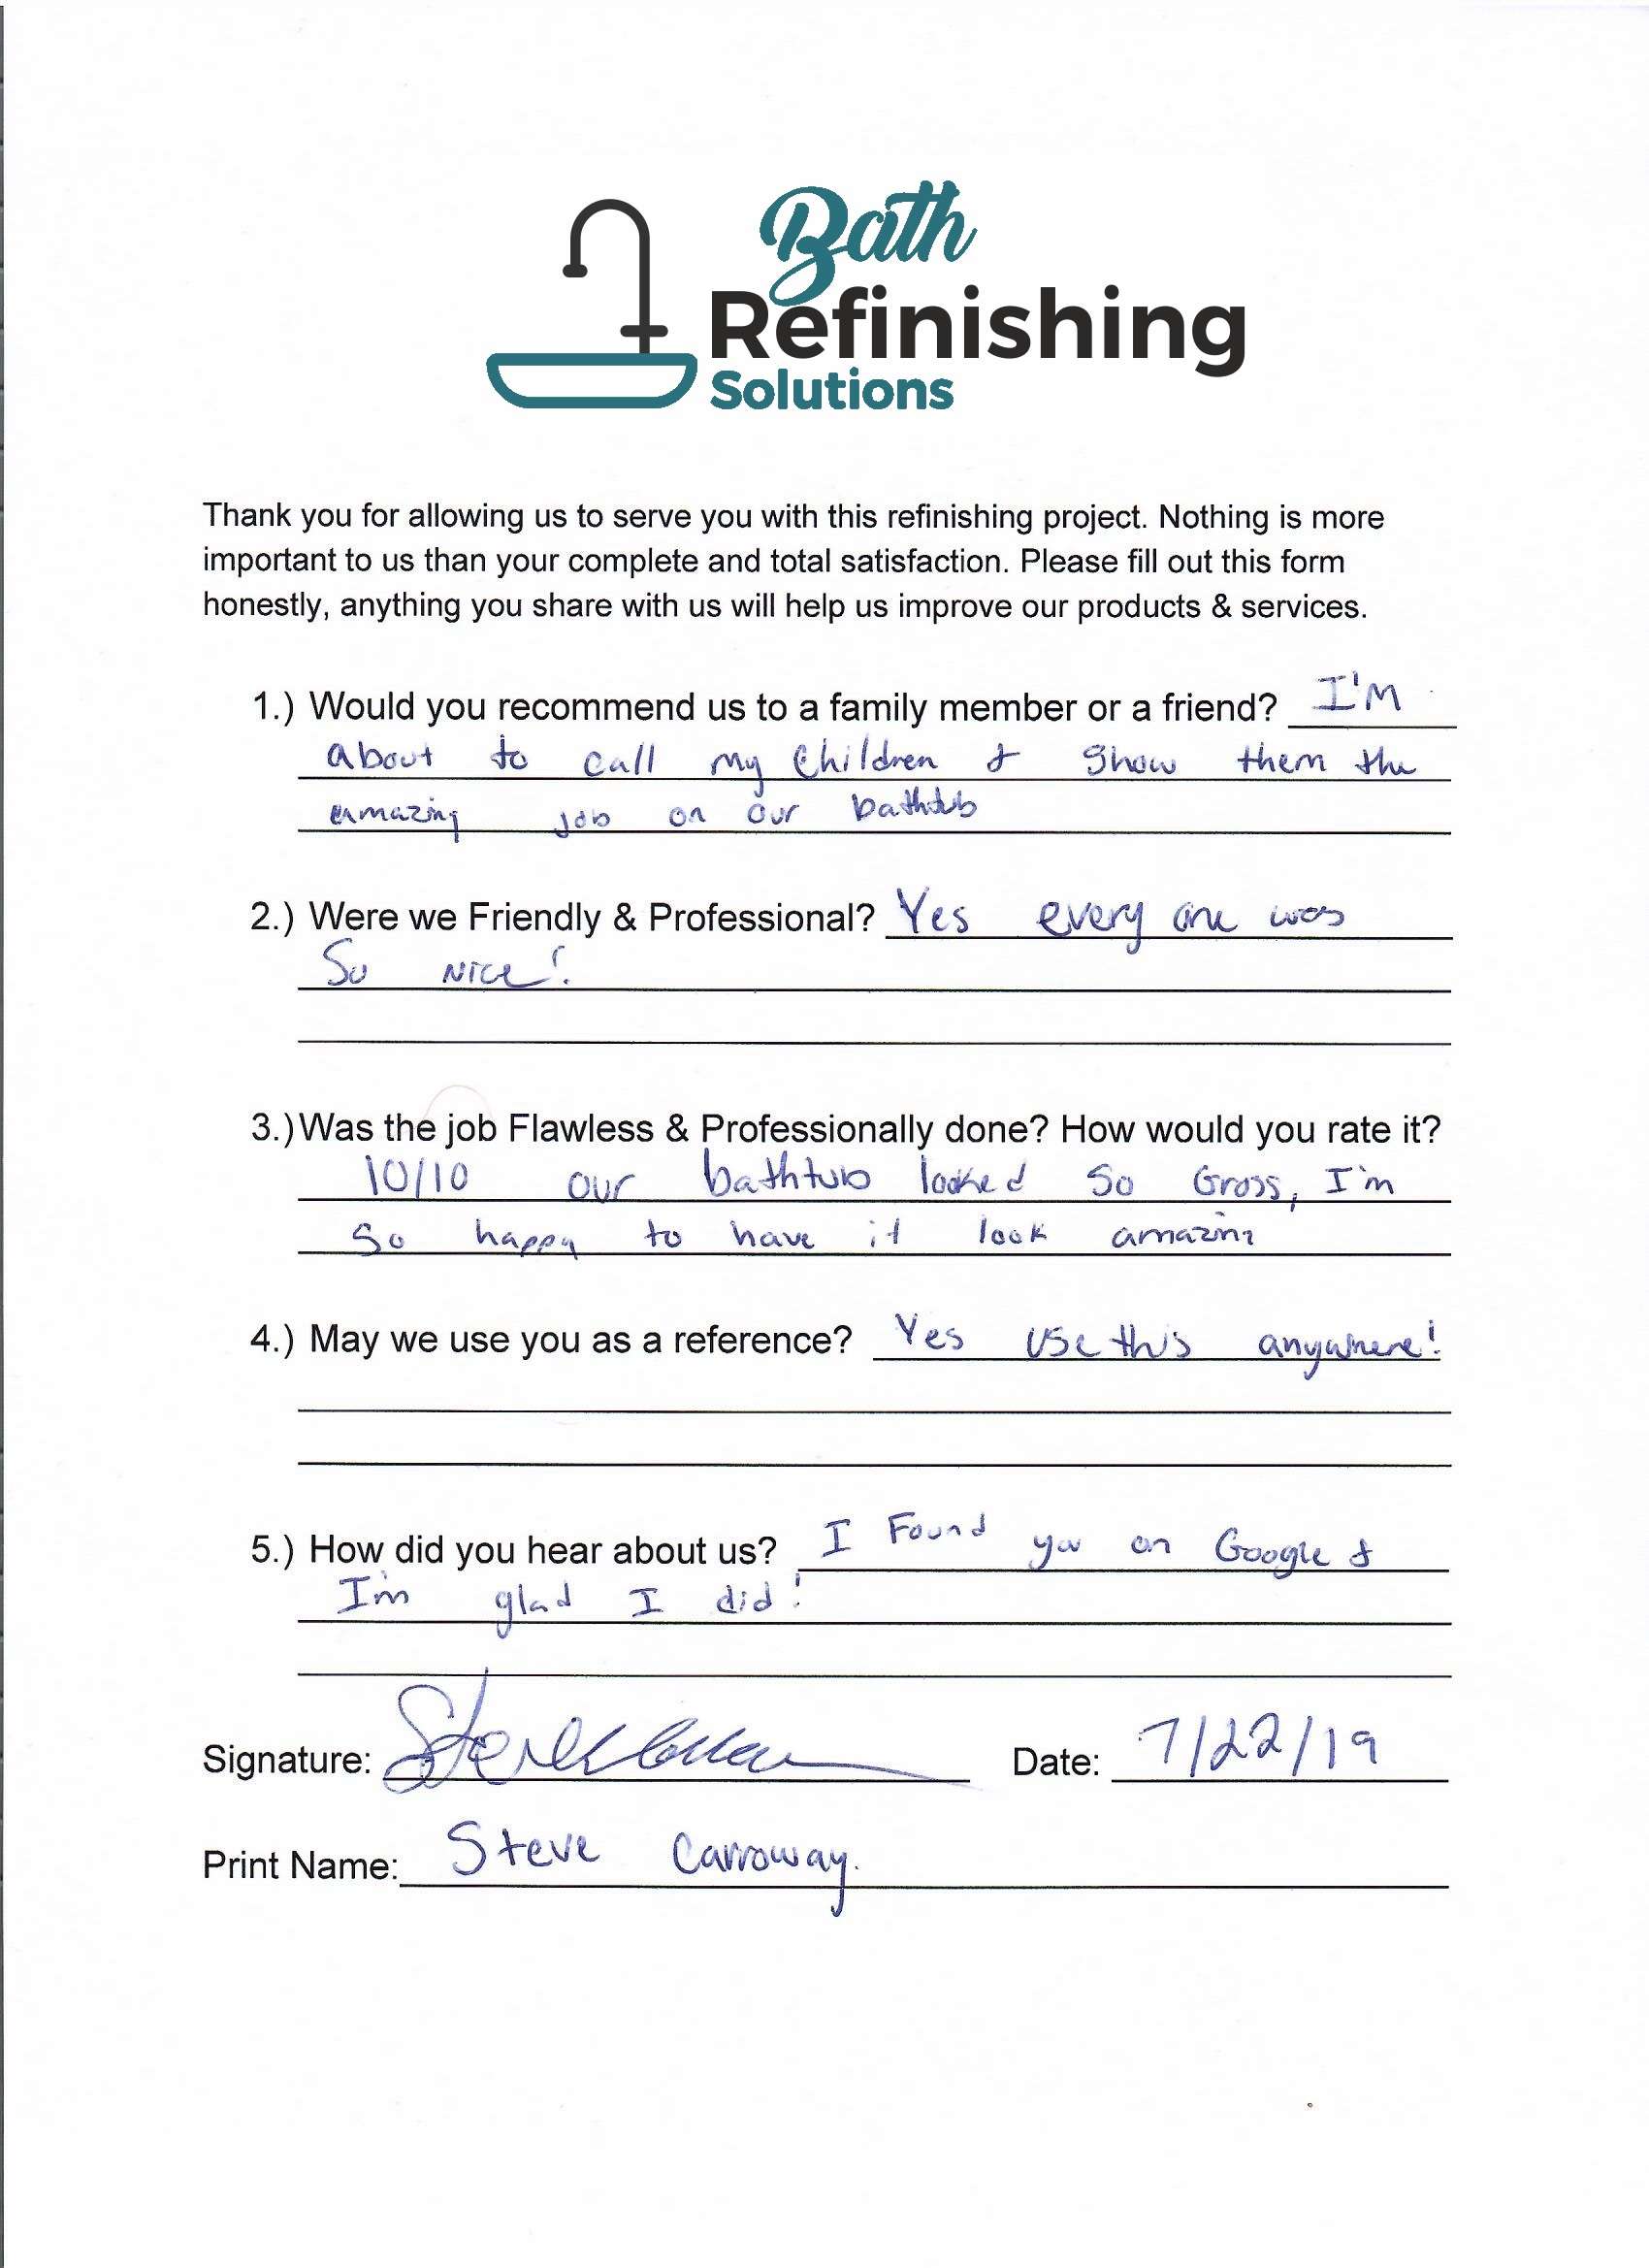 Bath
Refinishing
Solutions
Thank you for allowing us to serve you with this refinishing project. Nothing is more
important to us than your complete and total satisfaction. Please fill out this form
honestly, anything you share with us will help us improve our products & services.
1.) Would you recommend us to a family member or a friend? I'M
about to call my children & show them the
amazing job on our bathtub
2.) Were we Friendly & Professional? Yes every one was
So nice!
3.) Was the job Flawless & Professionally done? How would you rate it?
10/10 our bathtub looked so Gross, I'm
so happy to have it look amazing
4.) May we use you as a reference? Yes use this anywhere!
5.) How did you hear about us? I Found you on Google &
I'm glad I did!
Signature: Date: 7/22/19
Print Name: Steve Carroway.